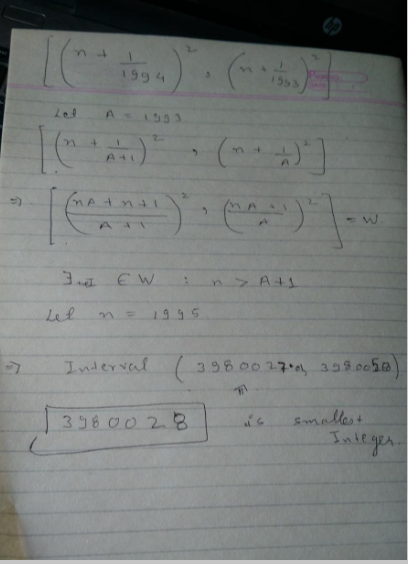 [ (n + 1/1994)² , (n + 1/1993)² ]
Let A = 1993
[ (n + 1/(A+1))² , (n + 1/A)² ]
⇒ [ ((nA + n + 1)/(A + 1))² , ((nA + 1)/A)² ] = W
∈ W : n > A+1
Let n = 1995
⇒ Interval ( 3980027 , 3980028 )
3980028 is smallest
Integer.